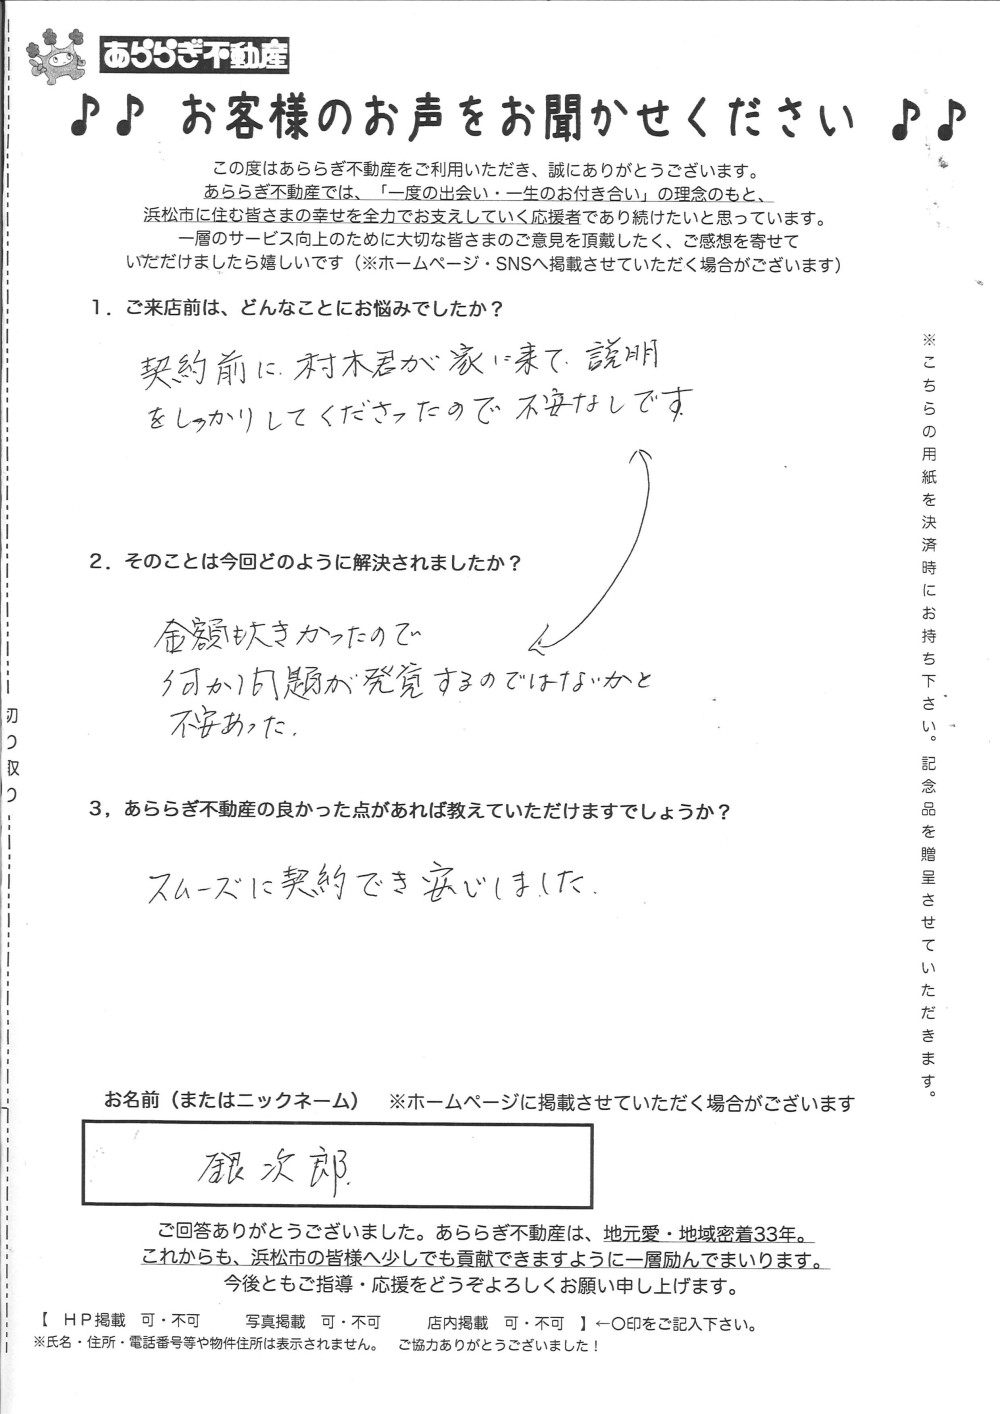 あららぎ不動産
♪♪ お客様のお声をお聞かせください ♪♪
この度はあららぎ不動産をご利用いただき、誠にありがとうございます。
あららぎ不動産では、「一度の出会い・一生のお付き合い」の理念のもと、
浜松市に住む皆さまの幸せを全力でお支えしていく応援者であり続けたいと思っています。
一層のサービス向上のために大切な皆さまのご意見を頂戴したく、ご感想を寄せて
いただけましたら嬉しいです（※ホームページ・SNSへ掲載させていただく場合がございます）
1．ご来店前は、どんなことにお悩みでしたか？
契約前に、村木君が家に来て、説明
をしっかりしてくださったので不安なしです
2．そのことは今回どのように解決されましたか？
金額も大きかったので
何か問題が発覚するのではないかと
不安あった.
3，あららぎ不動産の良かった点があれば教えていただけますでしょうか？
スムーズに契約でき安心しました.
お名前（またはニックネーム） ※ホームページに掲載させていただく場合がございます
銀次郎.
ご回答ありがとうございました。あららぎ不動産は、地元愛・地域密着33年。
これからも、浜松市の皆様へ少しでも貢献できますように一層励んでまいります。
今後ともご指導・応援をどうぞよろしくお願い申し上げます。
【 HP掲載 可・不可 写真掲載 可・不可 店内掲載 可・不可 】←〇印をご記入下さい。
※氏名・住所・電話番号等や物件住所は表示されません。 ご協力ありがとうございました！
※こちらの用紙を決済時にお持ち下さい。記念品を贈呈させていただきます。
切り取り